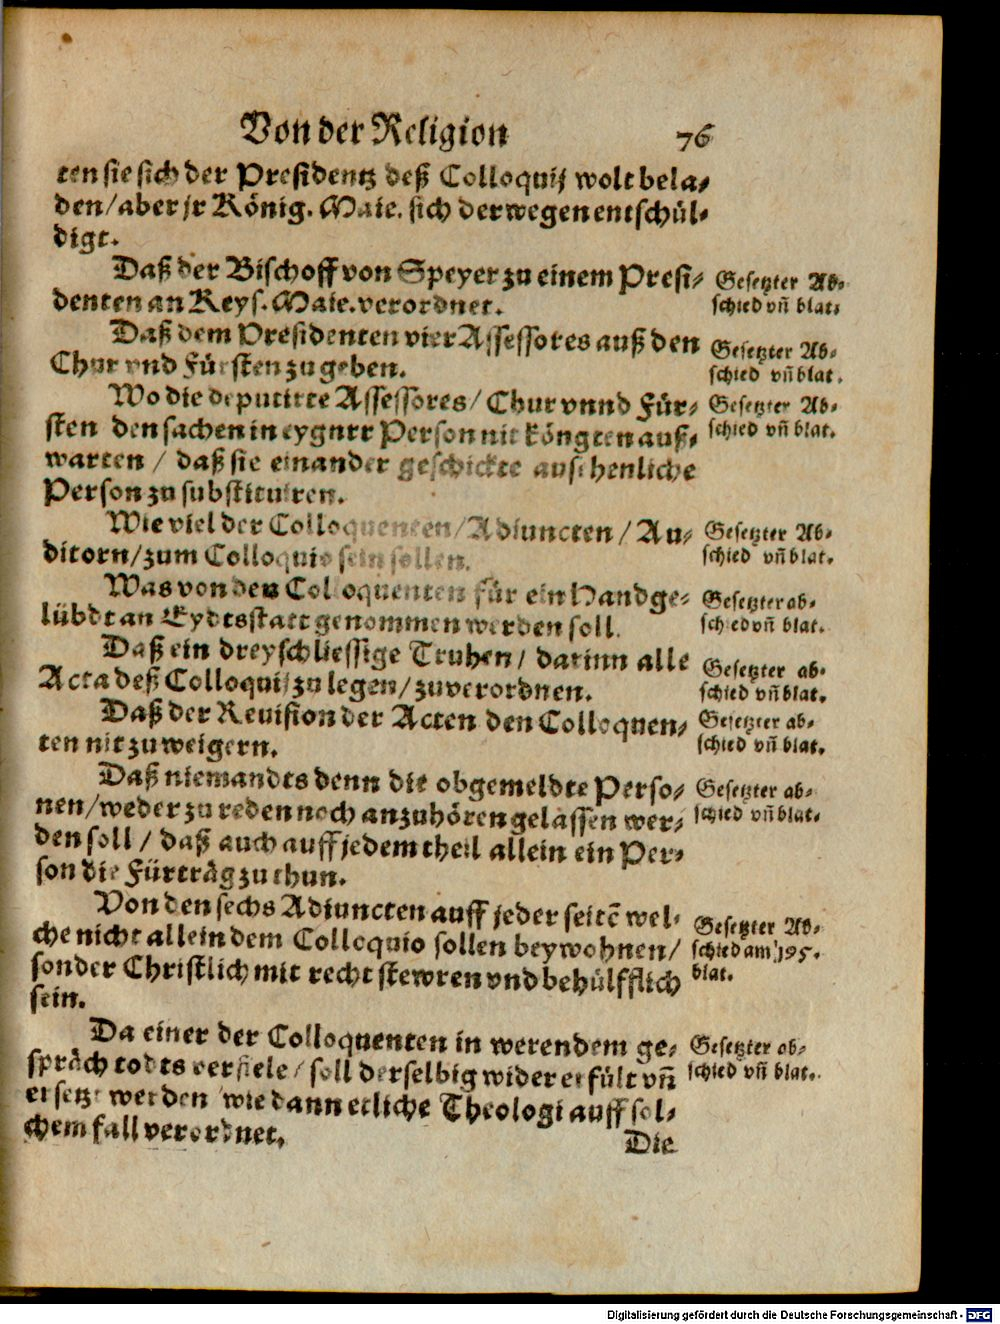 Von der Religion 76
ten sie sich der Presidentz deß Colloquij wolt bela⸗
den / aber jr König. Maie. sich derwegen entschül⸗
digt.
Daß der Bischoff von Speyer zu einem Presi⸗
denten an Keys. Maie. verordnet.
Gesetzter Ab⸗
schied vñ blat.
Daß dem Presidenten vier Assessores auß den
Chur vnd Fürsten zu geben.
Gesetzter Ab⸗
schied vñ blat.
Wo die deputirte Assessores / Chur vnnd Für⸗
sten den sachen in eygner Person nit köngten auß⸗
warten / daß sie einander geschickte ansehenliche
Person zu substituiren.
Gesetzter Ab⸗
schied vñ blat.
Wie viel der Colloquenten / Adiuncten / Au⸗
ditorn / zum Colloquio sein sollen.
Gesetzter Ab⸗
schied vñ blat.
Was von den Colloquenten für ein Handge⸗
lübdt an Eydtsstatt genommen werden soll.
Gesetzter ab⸗
schied vñ blat.
Daß ein dreyschliessige Truhen / darinn alle
Acta deß Colloquij zu legen / zuverordnen.
Gesetzter ab⸗
schied vñ blat.
Daß der Revision der Acten den Colloquen⸗
ten nit zu weigern.
Gesetzter ab⸗
schied vñ blat.
Daß niemandts denn die obgemeldte Perso⸗
nen / weder zu reden noch anzuhören gelassen wer⸗
den soll / daß auch auff jedem theil allein ein Per⸗
son die Fürträg zu thun.
Gesetzter ab⸗
schied vñ blat.
Von den sechs Adiuncten auff jeder seitẽ wel⸗
che nicht allein dem Colloquio sollen beywohnen /
sonder Christlich mit recht stewren vnd behülfflich
sein.
Gesetzter Ab⸗
schied am 195.
blat.
Da einer der Colloquenten in werendem ge⸗
spräch todts verfiele / soll derselbig wider erfült vñ
ersetzt werden / wie dann etliche Theologi auff sol⸗
chem fall verordnet.
Gesetzter ab⸗
schied vñ blat.
Die
Digitalisierung gefördert durch die Deutsche Forschungsgemeinschaft - DFG